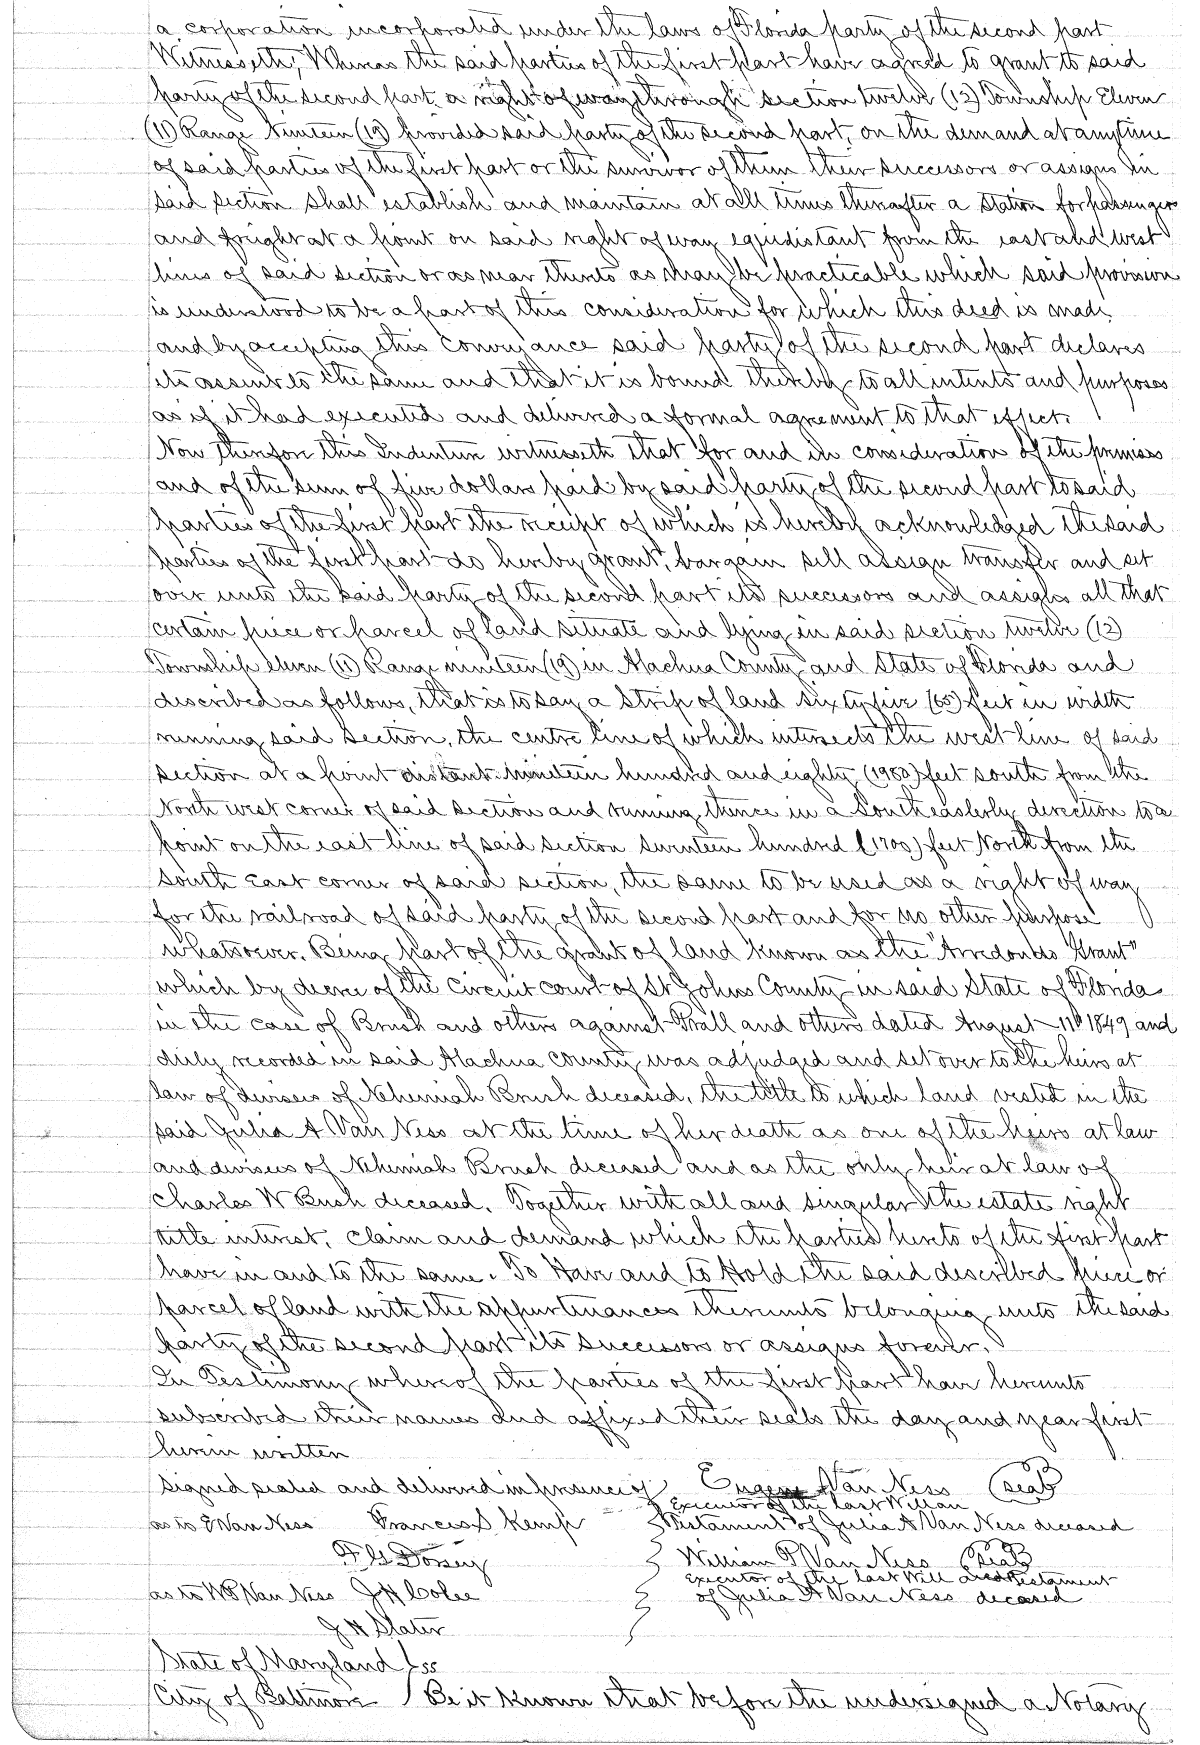 a corporation incorporated under the laws of Florida party of the second part
Witnesseth, Whereas the said parties of the first part have agreed to grant to said
party of the second part a right of way through section twelve (12) Township Eleven
(11) Range Nineteen (19) provided said party of the second part, on the demand at anytime
of said parties of the first part or the survivor of them their successors or assigns in
said section shall establish and maintain at all times thereafter a station for passengers
and freight at a point on said right of way equidistant from the east and west
lines of said section or as near thereto as may be practicable which said provision
is understood to be a part of this consideration for which this deed is made
and by accepting this conveyance said party of the second part declares
its assent to the same and that it is bound thereby to all intents and purposes
as if it had executed and delivered a formal agreement to that effect.
Now therefore this Indenture witnesseth that for and in consideration of the premises
and of the sum of five dollars paid by said party of the second part to said
parties of the first part the receipt of which is hereby acknowledged the said
parties of the first part do hereby grant, bargain sell assign transfer and set
over unto the said party of the second part its successors and assigns all that
certain piece or parcel of land situate and lying in said section twelve (12)
Township eleven (11) Range nineteen (19) in Alachua County and State of Florida and
described as follows, that is to say a strip of land sixty five (65) feet in width
running said section, the centre line of which intersects the west line of said
section at a point distant nineteen hundred and eighty (1980) feet south from the
North west corner of said section and running thence in a Southeasterly direction to a
point on the east line of said section seventeen hundred (1700) feet North from the
South East corner of said section, the same to be used as a right of way
for the railroad of said party of the second part and for no other purpose
whatsoever. Being part of the grant of land known as the "Arredondo Grant"
which by decree of the Circuit court of St Johns County in said State of Florida
in the case of Brush and others against Thrall and others dated August 11th 1849 and
duly recorded in said Alachua County was adjudged and set over to the heirs at
law of devisees of Nehemiah Brush deceased, the title to which land vested in the
said Julia A Van Ness at the time of her death as one of the heirs at law
and devisees of Nehemiah Brush deceased and as the only heir at law of
Charles W Bush deceased. Together with all and singular the estate right
title interest, claim and demand which the parties hereto of the first part
have in and to the same. To Have and to Hold the said described piece or
parcel of land with the appurtenances thereunto belonging unto the said
party of the second part its successors or assigns forever.
In Testimony whereof the parties of the first part have hereunto
subscribed their names and affixed their seals the day and year first
herein written
signed sealed and delivered in presence of Eugene Van Ness (seal)
executor of the last Will an
as to E Van Ness Francis S Kemp Testament of Julia A Van Ness deceased
F G Dorsey William P Van Ness (seal)
executor of the last Will and Testament
as to W P Van Ness J H Colee of Julia A Van Ness deceased
J H Slater
State of Maryland } ss
City of Baltimore } Be it known that before the undersigned a Notary